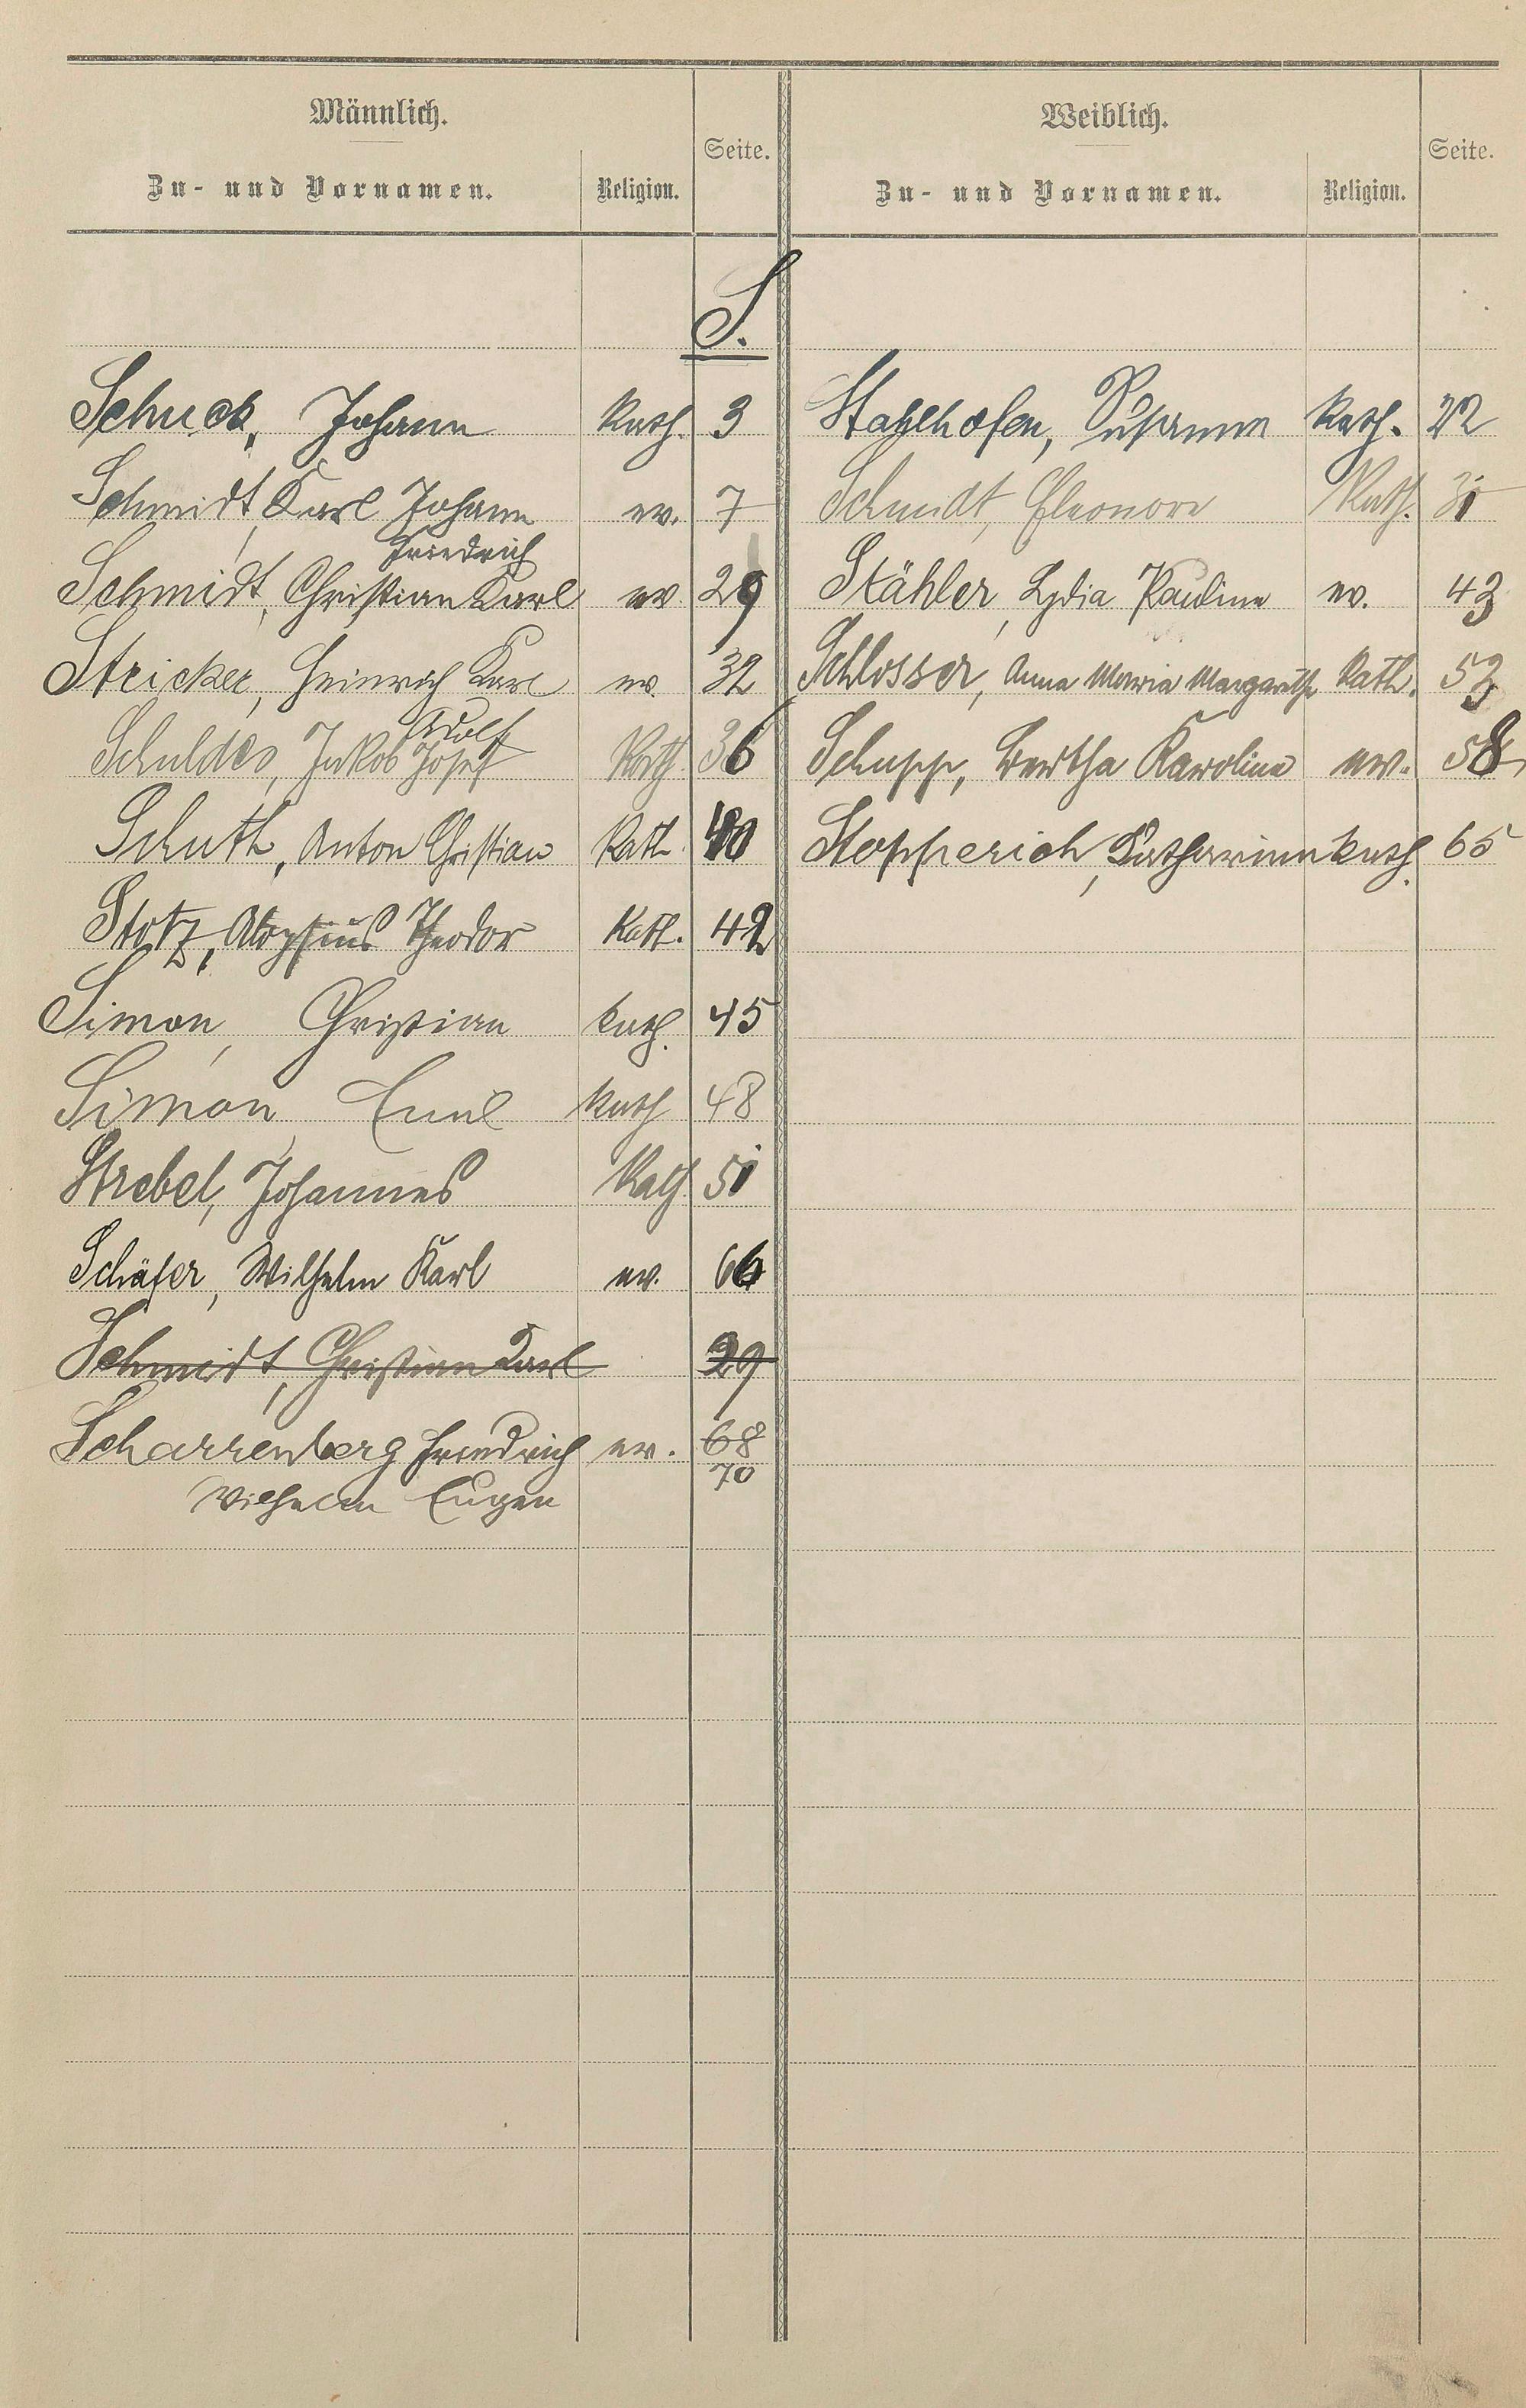 Männlich.
Zu- und Vornamen.
Religion.
Seite.
Weiblich.
Zu- und Vornamen.
Religion.
Seite.
S.
Schuck, Johann Kath. 3
Schmidt, Karl Johann ev. 7
Friedrich
Schmidt, Christian Karl ev. 29
Stricker, Heinrich Karl ev. 32
Adolf
Schuldes, Jakob Josef Kath. 36
Schuth, Anton Christian Kath. 40
Stotz, Aloysius Theodor Kath. 42
Simon, Christian kath. 45
Simon, Emil kath 48
Strebel, Johannes Kath. 51
Schäfer, Wilhelm Karl ev. 66
Schmidt, Christian Karl 29
Scharrenberg Friedrich ev. 68
70
Wilhelm Eugen
Stahlhofen, Susanna Kath. 22
Schmidt, Eleonore Kath. 31
Stähler, Lydia Pauline ev. 43
Schlosser, Anna Maria Margaretha Kath. 53
Schupp, Bertha Karolina ev. 58
Stopperich, Katharina kath. 65